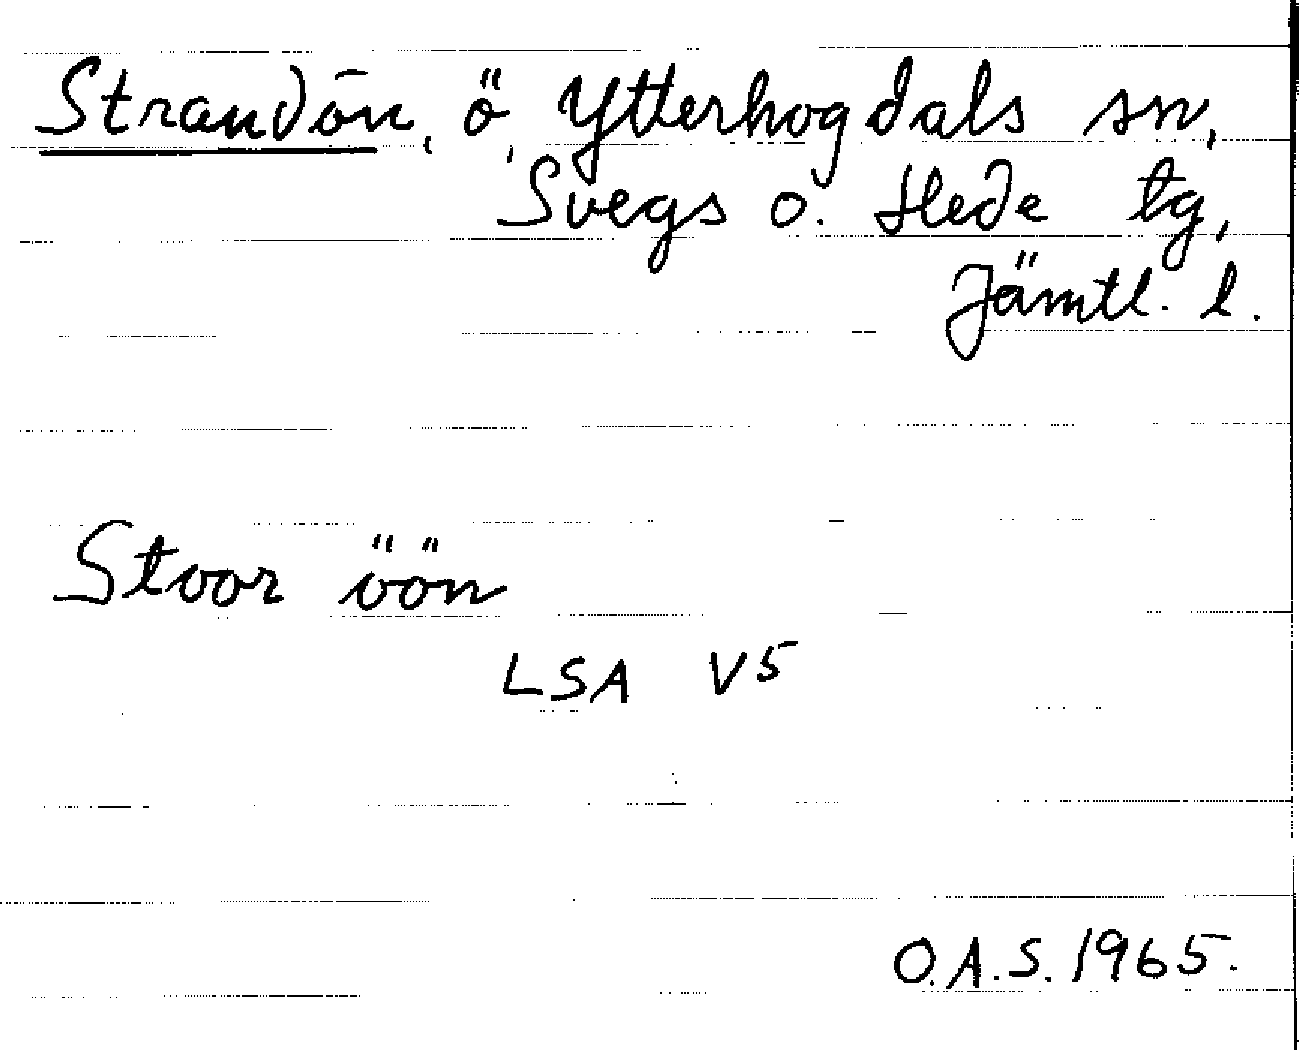 Strandön, ö, Ytterhogdals sn,
Svegs o. Hede tg,
Jämtl. l.
Stoor öön
LSA V5
O.A.S. 1965.